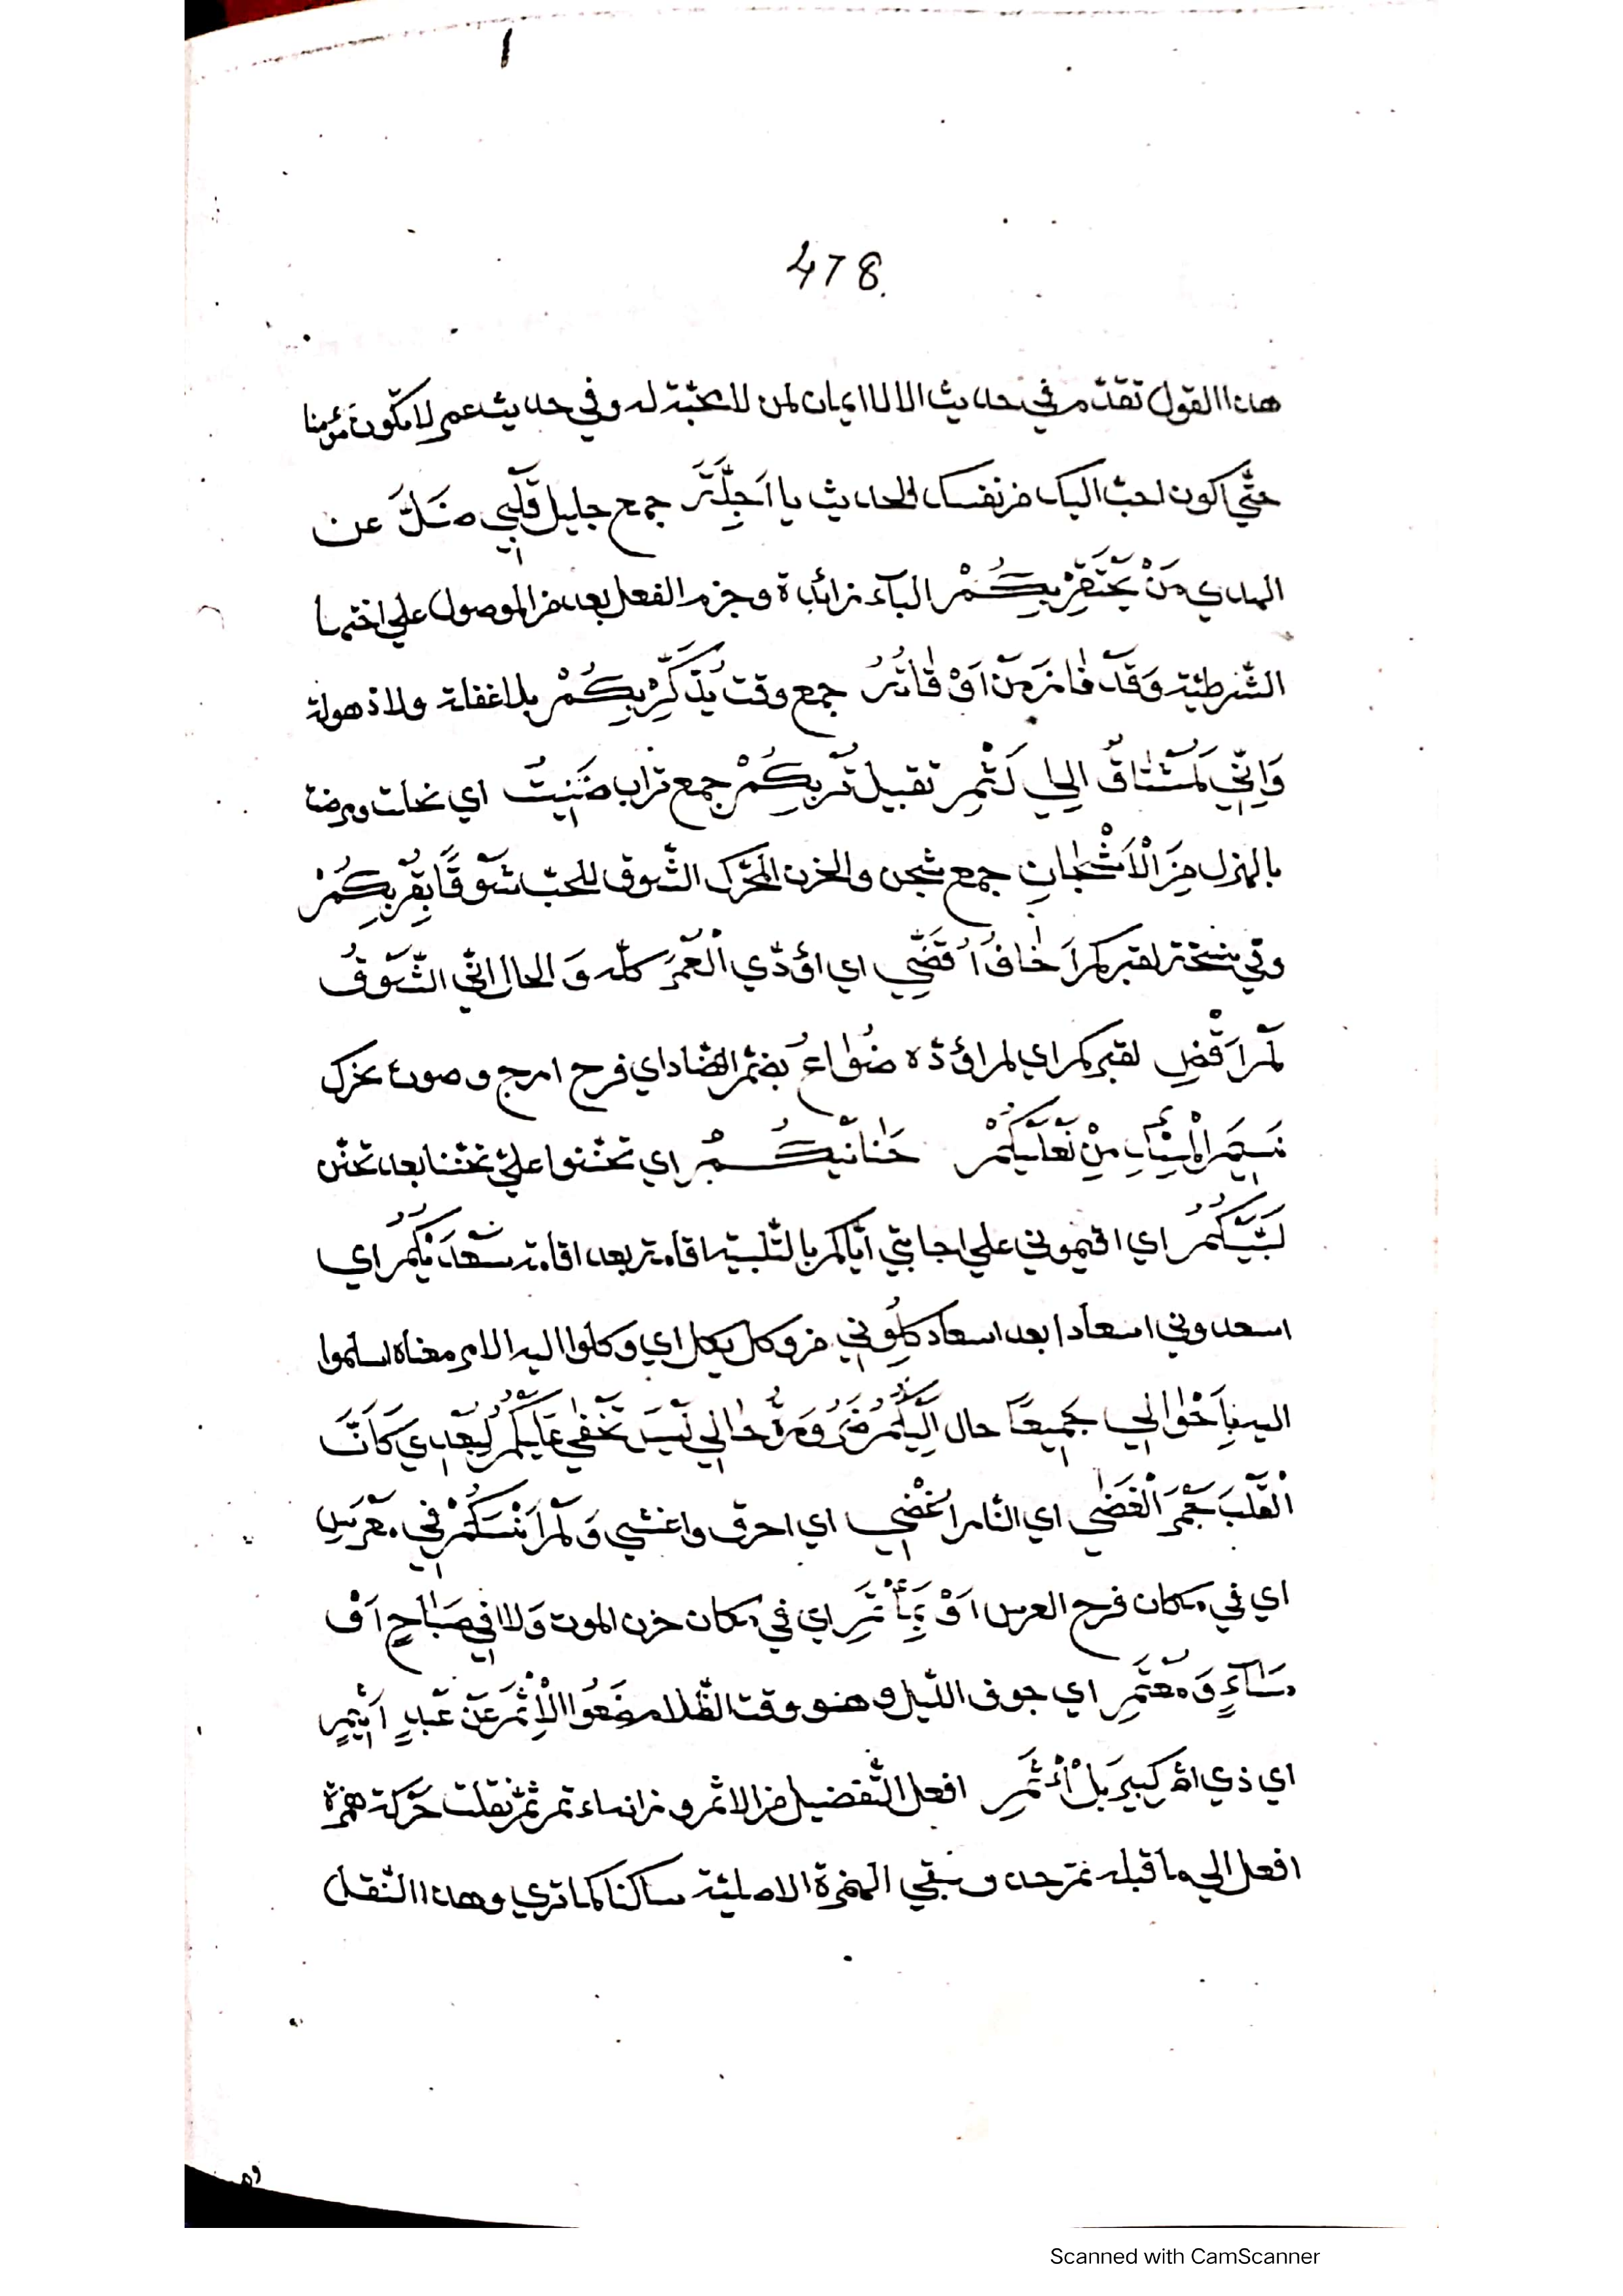 478
هذا القول تقدّم في حديث الا لا ايمان لمن لا محبّة له وفي حديث عمر لا تكون مؤمنا
حتّي اكون احبّ اليك من نفسك الحديث يا اَجِلَّةَ جمع جليل قَلْبِي ضَلَّ عن
الهدي مَنْ يَحْتَقِرْ بِكُمْ البآء زائدة وجزم الفعل بعد من الموصول علي اختها
الشّرطيّة وَقَدْ فَازَ مَنْ اَوْقَاتُهُ جمع وقت يُذَكِّرْ بِكُمْ بلا غفلة ولا ذهولة
وَاِنِّي لَمُشْتَاقٌ اِلي لَثْمِ تقبيل تُرْبِكُمْ جمع تراب ضَنِيتُ اي نحلت ومرضت
بالهزل مِنَ الْاَشْجَانِ جمع شجن والحزن المحرّك الشّوق للحبّ شَوْقًا بِقُرْبِكُمْ
وفي نسخة لقبركم اَخَافُ اُقَضِّي اي اؤدّي الْعُمْرَ كلّه وَ الحال انّي الشَّوْقُ
لَمْ اَقْضِ لقبركم اي لم اؤدّه ضُوَاعُ بضمّ الضّاد اي فرح امرج وصوت محرّك
نَسِيمَ مِنْ حَنَانَيْكُمُ اي تحنّنوا عليّ تحنّنا بعد تحنّن
لَبَّيْكُمُ اي اقيموني علي اجابتي ايّاكم بالتّلبية اقامة بعد اقامة سَعْدَيْكُمُ اي
اسعدوني اسعادا بعد اسعاد كِلُونِي من وكل يكل اي وكلوا اليه الامر معناه اسلموا
اليه بِاَحْوَالِي جَمِيعًا حال اِلَيْكُمُ ضَرُورَةُ حَالِي لَيْسَ تَخْفَي عَلَيْكُمُ لِبُعْدِي كَاَنَّ
الْقَلْبَ جَمْرَ الْغَضَي اي النّار اُغْضِي اي احرق واغشي وَلَمْ اَنْسَكُمْ فِي مَعْرَسِ
اي في مكان فرح العرس اَوْ بِمَأْتَمِ اي في مكان حزن الموت وَلَا فِي صَبَاحٍ اَوْ
مَسَاءٍ وَ مُعْتَمِ اي جوف اللّيل وهو وقت الظّلام ضَعُوا الْاِثْمَ عَنْ عَبْدٍ اَثِيمٍ
اي ذي اثم كبير بَلْ أْثَمِ افعل التّفضيل من الاثم وزانه اءثم ثمّ نقلت حركة همزة
افعل الي ما قبله ثمّ حذف وبقي الهمزة الاصليّة ساكنا كما تري وهذا النّقل
Scanned with CamScanner